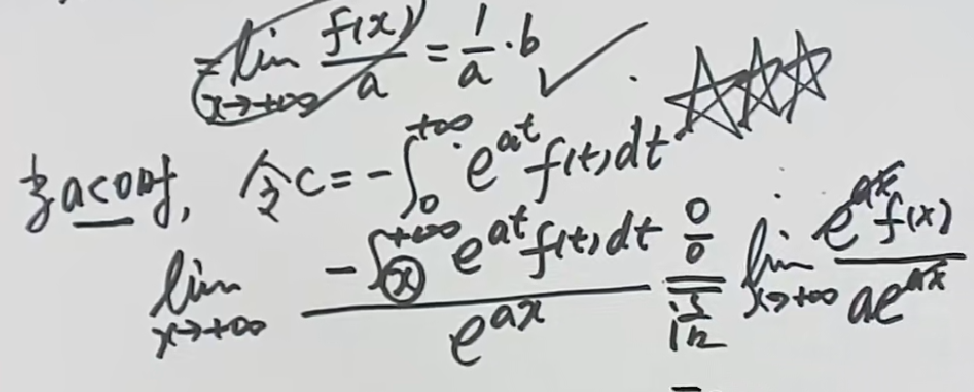 = lim_{x→+∞} f(x)/a = 1/a · b ✓ . ☆☆☆
当a<0时, 令C = -∫_0^{+∞} e^{at} f(t)dt
lim_{x→+∞} (-∫_x^{+∞} e^{at} f(t)dt)/(e^{ax}) =(0/0 洛) lim_{x→+∞} (e^{ax} f(x))/(ae^{ax})